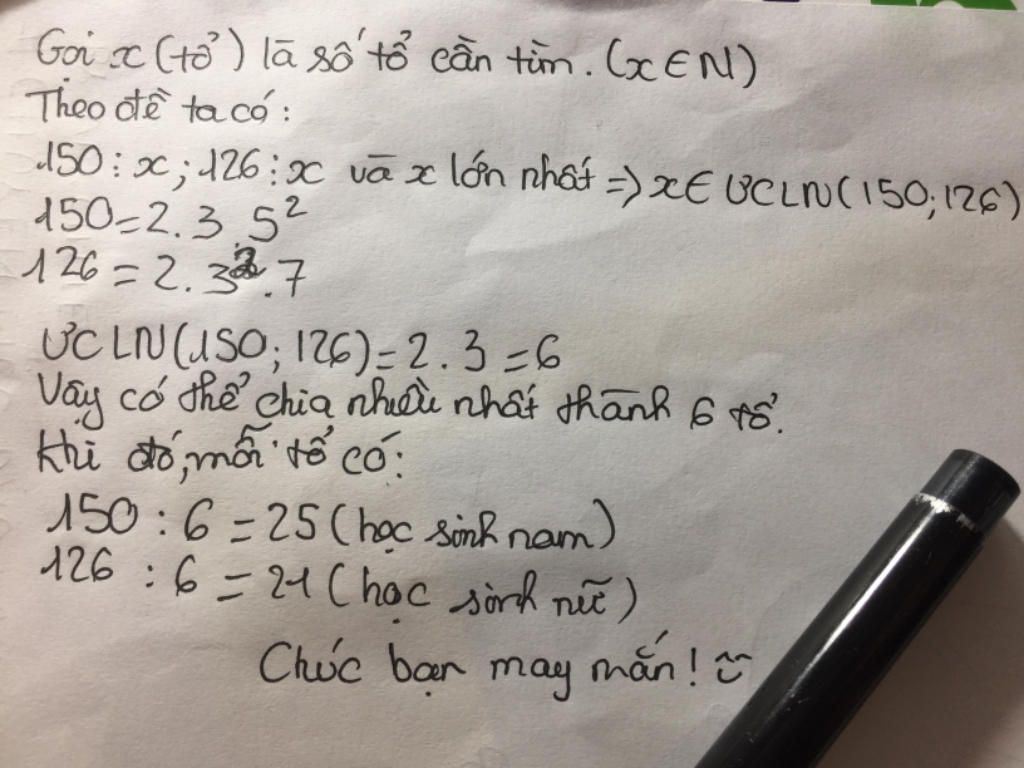 Gọi x (tổ) là số tổ cần tìm. (x ∈ N)
Theo đề ta có:
150 : x ; 126 : x và x lớn nhất => x ∈ ƯCLN(150; 126)
150 = 2 . 3 . 5²
126 = 2 . 3² . 7
ƯCLN(150; 126) = 2 . 3 = 6
Vậy có thể chia nhiều nhất thành 6 tổ.
Khi đó, mỗi tổ có:
150 : 6 = 25 (học sinh nam)
126 : 6 = 21 (học sinh nữ)
Chúc bạn may mắn! :)